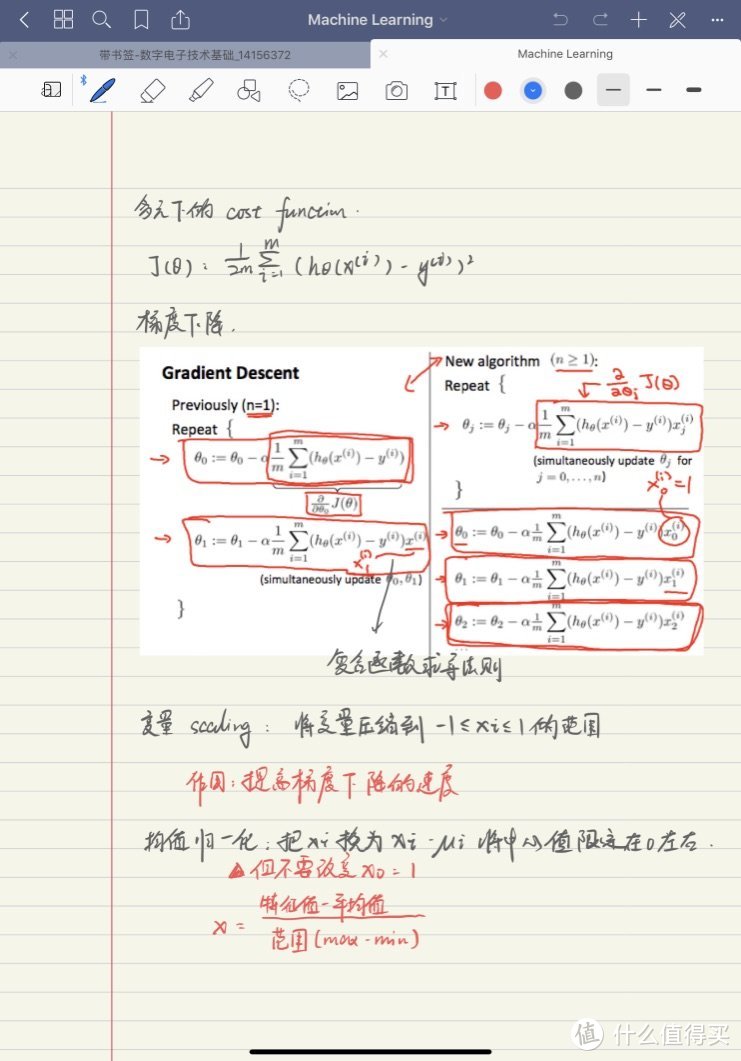 Machine Learning
带书签-数字电子技术基础_14156372
Machine Learning
多元下的 cost function.
J(θ): 1/2m ∑_{i=1}^{m} (hθ(x^(i)) - y^(i))²
梯度下降.
Gradient Descent
Previously (n=1):
Repeat {
θ₀ := θ₀ - α 1/m ∑_{i=1}^{m} (h_θ(x^(i)) - y^(i))
∂/∂θ₀ J(θ)
θ₁ := θ₁ - α 1/m ∑_{i=1}^{m} (h_θ(x^(i)) - y^(i))x^(i)
x₁^(i)
(simultaneously update θ₀, θ₁)
}
New algorithm (n ≥ 1):
Repeat {
∂/∂θj J(θ)
θ_j := θ_j - α 1/m ∑_{i=1}^{m} (h_θ(x^(i)) - y^(i))x_j^(i)
(simultaneously update θ_j for
j = 0, . . . , n)
x₀^(i) = 1
}
θ₀ := θ₀ - α 1/m ∑_{i=1}^{m} (h_θ(x^(i)) - y^(i))x₀^(i)
θ₁ := θ₁ - α 1/m ∑_{i=1}^{m} (h_θ(x^(i)) - y^(i))x₁^(i)
θ₂ := θ₂ - α 1/m ∑_{i=1}^{m} (h_θ(x^(i)) - y^(i))x₂^(i)
...
复合函数求导法则
变量 scaling: 将变量压缩到 -1≤xi≤1 的范围
作用:提高梯度下降的速度
均值归一化:把xi换为xi-μi 将中心值限定在0左右.
▲但不要改变x0=1
x = 特征值-平均值 / 范围(max-min)
值 什么值得买